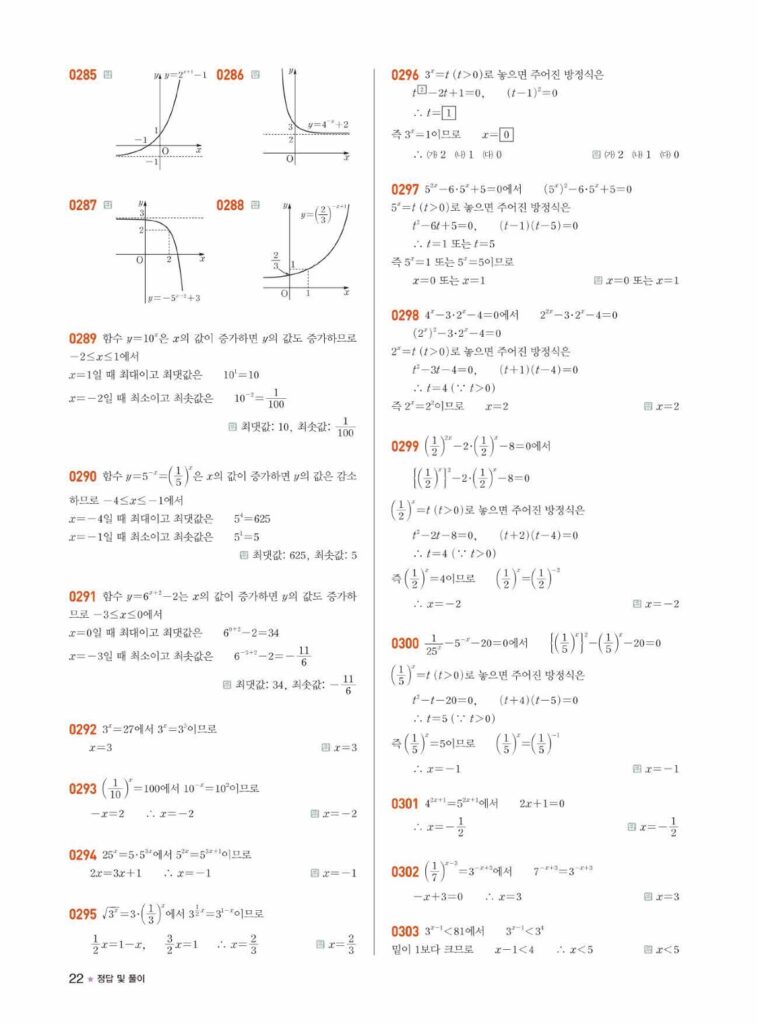 0285 답 y y=2^{x+1}-1 1 -1 O x -1
0286 답 y y=4^{-x}+2 3 2 O x
0287 답 y 3 2 O 2 x y=-5^{x-2}+3
0288 답 y y=(2/3)^{-x+1} 2/3 1 O 1 x
0289 함수 y=10^x은 x의 값이 증가하면 y의 값도 증가하므로
-2≤x≤1에서
x=1일 때 최대이고 최댓값은 10^1=10
x=-2일 때 최소이고 최솟값은 10^{-2}=1/100
답 최댓값: 10, 최솟값: 1/100
0290 함수 y=5^{-x}=(1/5)^x은 x의 값이 증가하면 y의 값은 감소
하므로 -4≤x≤-1에서
x=-4일 때 최대이고 최댓값은 5^4=625
x=-1일 때 최소이고 최솟값은 5^1=5
답 최댓값: 625, 최솟값: 5
0291 함수 y=6^{x+2}-2는 x의 값이 증가하면 y의 값도 증가하
므로 -3≤x≤0에서
x=0일 때 최대이고 최댓값은 6^{0+2}-2=34
x=-3일 때 최소이고 최솟값은 6^{-3+2}-2=-11/6
답 최댓값: 34, 최솟값: -11/6
0292 3^x=27에서 3^x=3^3이므로
x=3 답 x=3
0293 (1/10)^x=100에서 10^{-x}=10^2이므로
-x=2 ∴ x=-2 답 x=-2
0294 25^x=5·5^{3x}에서 5^{2x}=5^{3x+1}이므로
2x=3x+1 ∴ x=-1 답 x=-1
0295 √3^x=3·(1/3)^x에서 3^{1/2x}=3^{1-x}이므로
1/2x=1-x, 3/2x=1 ∴ x=2/3 답 x=2/3
22 ★ 정답 및 풀이
0296 3^x=t (t>0)로 놓으면 주어진 방정식은
t^2-2t+1=0, (t-1)^2=0
∴ t=1
즉 3^x=1이므로 x=0
∴ ㈎ 2 ㈏ 1 ㈐ 0 답 ㈎ 2 ㈏ 1 ㈐ 0
0297 5^{2x}-6·5^x+5=0에서 (5^x)^2-6·5^x+5=0
5^x=t (t>0)로 놓으면 주어진 방정식은
t^2-6t+5=0, (t-1)(t-5)=0
∴ t=1 또는 t=5
즉 5^x=1 또는 5^x=5이므로
x=0 또는 x=1 답 x=0 또는 x=1
0298 4^x-3·2^x-4=0에서 2^{2x}-3·2^x-4=0
(2^x)^2-3·2^x-4=0
2^x=t (t>0)로 놓으면 주어진 방정식은
t^2-3t-4=0, (t+1)(t-4)=0
∴ t=4 (∵ t>0)
즉 2^x=2^2이므로 x=2 답 x=2
0299 (1/2)^{2x}-2·(1/2)^x-8=0에서
{(1/2)^x}^2-2·(1/2)^x-8=0
(1/2)^x=t (t>0)로 놓으면 주어진 방정식은
t^2-2t-8=0, (t+2)(t-4)=0
∴ t=4 (∵ t>0)
즉 (1/2)^x=4이므로 (1/2)^x=(1/2)^{-2}
∴ x=-2 답 x=-2
0300 1/25^x-5^{-x}-20=0에서 {(1/5)^x}^2-(1/5)^x-20=0
(1/5)^x=t (t>0)로 놓으면 주어진 방정식은
t^2-t-20=0, (t+4)(t-5)=0
∴ t=5 (∵ t>0)
즉 (1/5)^x=5이므로 (1/5)^x=(1/5)^{-1}
∴ x=-1 답 x=-1
0301 4^{2x+1}=5^{2x+1}에서 2x+1=0
∴ x=-1/2 답 x=-1/2
0302 (1/7)^{x-3}=3^{-x+3}에서 7^{-x+3}=3^{-x+3}
-x+3=0 ∴ x=3 답 x=3
0303 3^{x-1}<81에서 3^{x-1}<3^4
밑이 1보다 크므로 x-1<4 ∴ x<5 답 x<5